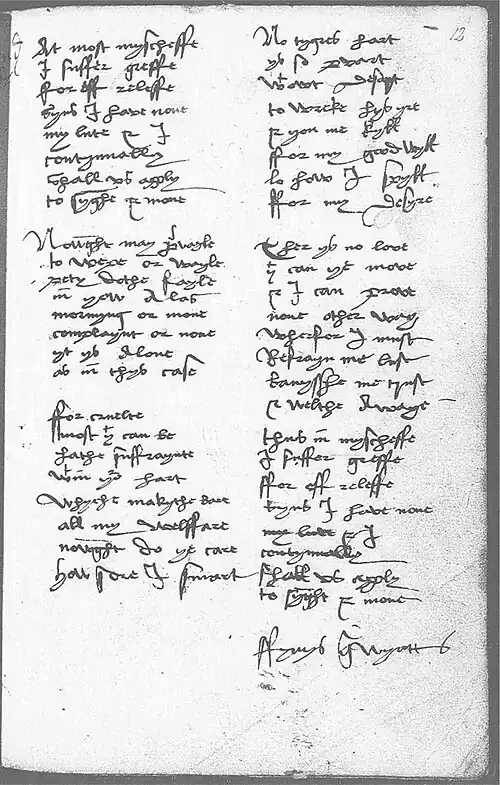 12
At most myscheffe
I suffer greffe
For off releffe
Syns I have none
my lute & I
contynnally
Shall us aply
to syghe & mone
Nowght may pvayle
to wepe or wayle
pety dothe fayle
in yow Alas
mornyng or mone
complaynt or none
yt ys Alone
as in thys case
ffor crueltе
most yt can be
hathe suffrayntе
wt in yor hart
Whyche makythe bare
all my welffare
nowght do ye care
how sore I smart
No tygres hart
ys so pvart
wtowt desert
to wreke hys yre
& you me kyll
ffor my goodwyll
lo how I spyll
ffor my desyre
Ther ys no love
yt can ye move
& I can prove
none other way
wherfor I must
Refrayn me lust
banysshe me trust
& welthe Awaye
thus in myscheffe
I suffer greffe
ffor off releffe
syns I have none
my lute & I
contynually
shall us aply
to syght & mone
ffynys qd Wyatt